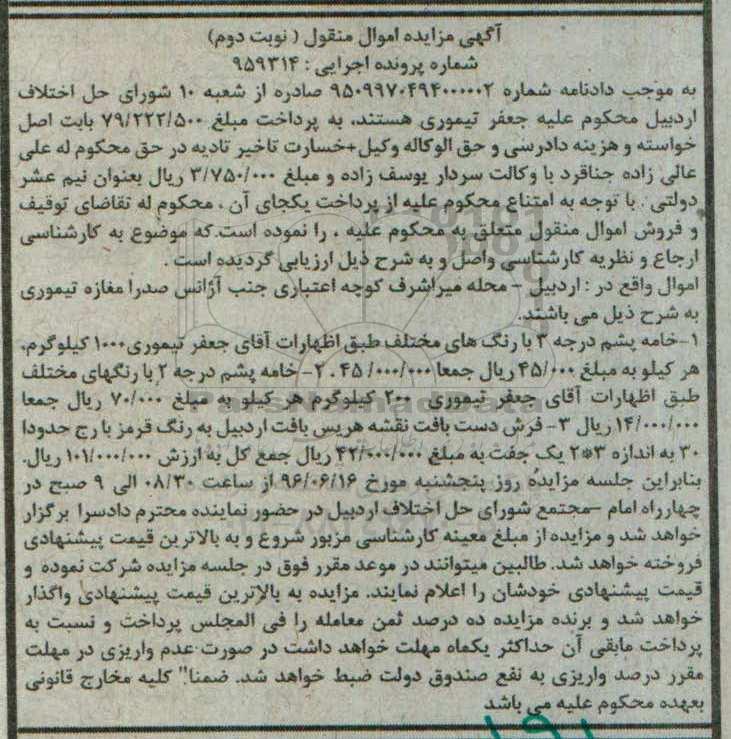 آگهی مزایده اموال منقول ( نوبت دوم)
شماره پرونده اجرایی : ۹۵۹۳۱۴
به موجب دادنامه شماره ۹۵۰۹۹۷۰۴۹۴۰۰۰۰۰۲ صادره از شعبه ۱۰ شورای حل اختلاف
اردبیل محکوم علیه جعفر تیموری هستند، به پرداخت مبلغ ۷۹/۲۲۲/۵۰۰ بابت اصل
خواسته و هزینه دادرسی و حق الوکاله وکیل+خسارت تاخیر تادیه در حق محکوم له علی
عالی زاده جناقرد با وکالت سردار یوسف زاده و مبلغ ۳/۷۵۰/۰۰۰ ریال بعنوان نیم عشر
دولتی . با توجه به امتناع محکوم علیه از پرداخت یکجای آن ، محکوم له تقاضای توقیف
و فروش اموال منقول متعلق به محکوم علیه ، را نموده است.که موضوع به کارشناسی
ارجاع و نظریه کارشناسی واصل و به شرح ذیل ارزیابی گردیده است .
اموال واقع در : اردبیل – محله میراشرف کوچه اعتباری جنب آژانس صدرا مغازه تیموری
به شرح ذیل می باشند.
۱-خامه پشم درجه ۳ با رنگ های مختلف طبق اظهارات آقای جعفر تیموری۱۰۰۰ کیلوگرم،
هر کیلو به مبلغ ۴۵/۰۰۰ ریال جمعا ۴۵/۰۰۰/۰۰۰ . ۲-خامه پشم درجه ۲ با رنگهای مختلف
طبق اظهارات آقای جعفر تیموری ۲۰۰ کیلوگرم هر کیلو به مبلغ ۷۰/۰۰۰ ریال جمعا
۱۴/۰۰۰/۰۰۰ ریال ۳- فرش دست بافت نقشه هریس بافت اردبیل به رنگ قرمز با رج حدودا
۳۰ به اندازه ۳*۲ یک جفت به مبلغ ۴۲/۰۰۰/۰۰۰ ریال جمع کل به ارزش ۱۰۱/۰۰۰/۰۰۰ ریال.
بنابراین جلسه مزایده روز پنجشنبه مورخ ۹۶/۰۶/۱۶ از ساعت ۰۸/۳۰ الی ۹ صبح در
چهارراه امام –مجتمع شورای حل اختلاف اردبیل در حضور نماینده محترم دادسرا برگزار
خواهد شد و مزایده از مبلغ معینه کارشناسی مزبور شروع و به بالاترین قیمت پیشنهادی
فروخته خواهد شد. طالبین میتوانند در موعد مقرر فوق در جلسه مزایده شرکت نموده و
قیمت پیشنهادی خودشان را اعلام نمایند. مزایده به بالاترین قیمت پیشنهادی واگذار
خواهد شد و برنده مزایده ده درصد ثمن معامله را فی المجلس پرداخت و نسبت به
پرداخت مابقی آن حداکثر یکماه مهلت خواهد داشت در صورت عدم واریزی در مهلت
مقرر درصد واریزی به نفع صندوق دولت ضبط خواهد شد. ضمنا" کلیه مخارج قانونی
بعهده محکوم علیه می باشد